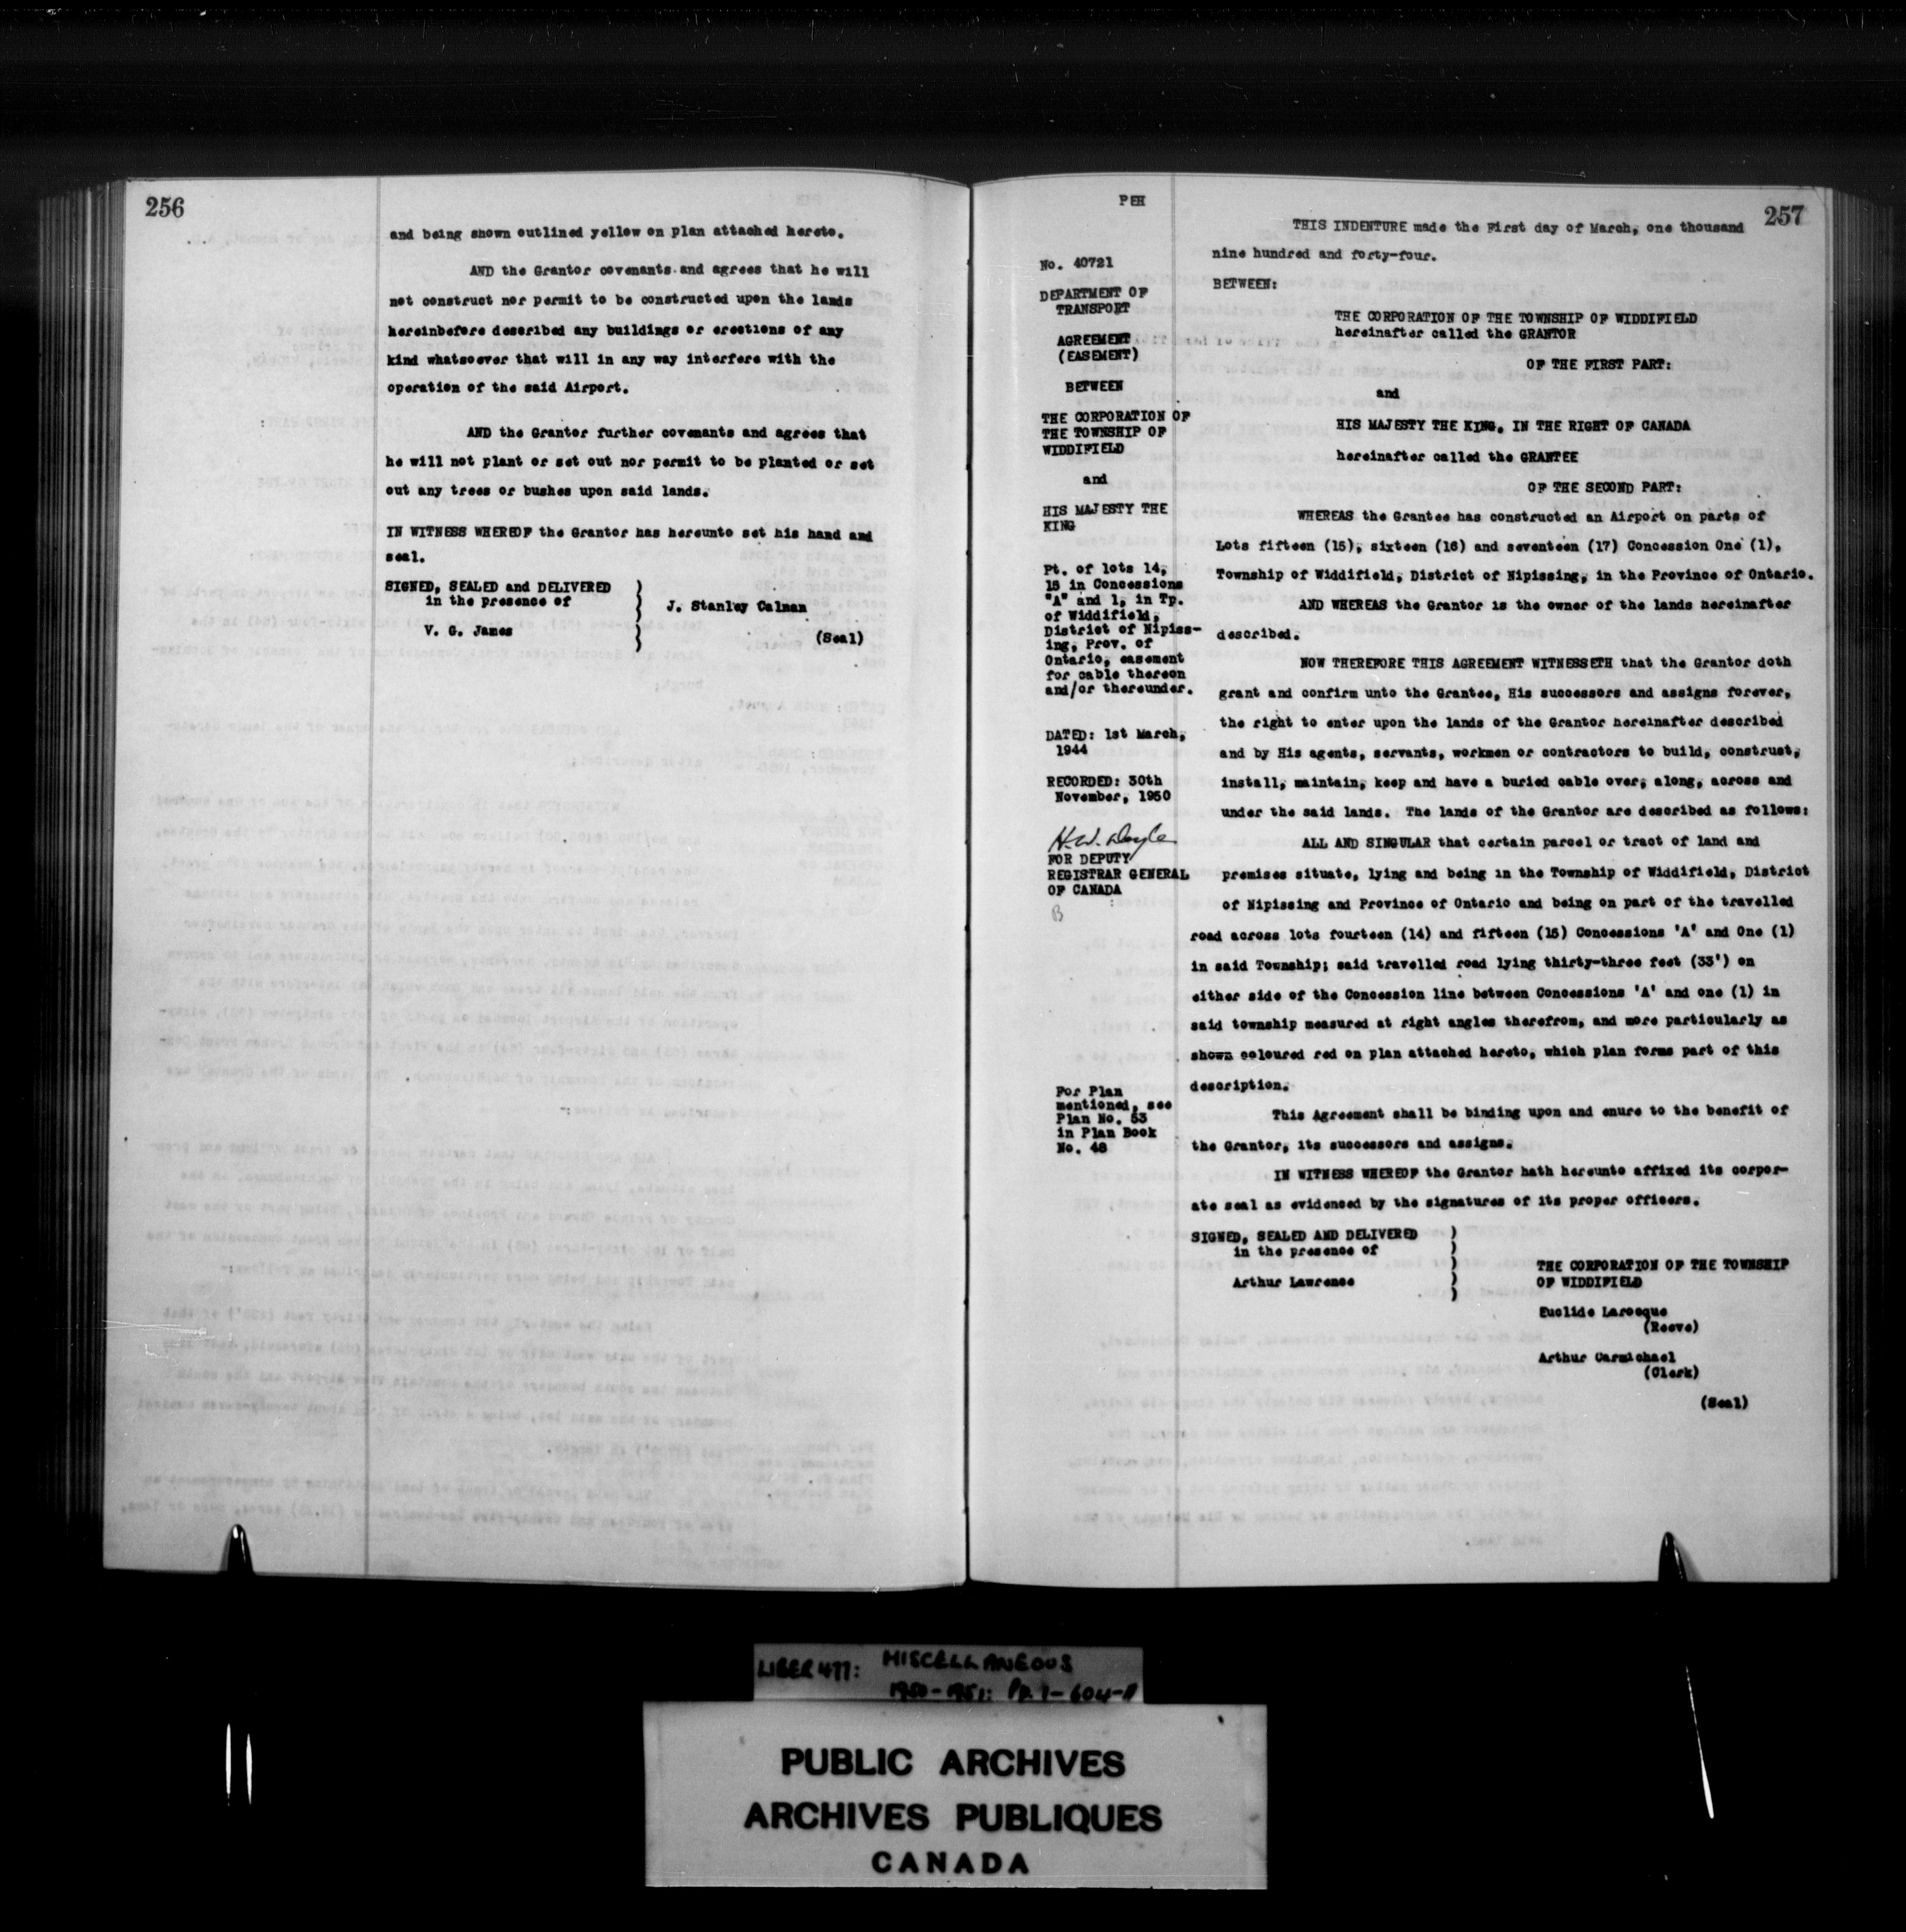 256
and being shown outlined yellow on plan attached hereto.
AND the Grantor covenants and agrees that he will
not construct nor permit to be constructed upon the lands
hereinbefore described any buildings or erections of any
kind whatsoever that will in any way interfere with the
operation of the said Airport.
AND the Grantor further covenants and agrees that
he will not plant or set out nor permit to be planted or set
out any trees or bushes upon said lands.
IN WITNESS WHEREOF the Grantor has hereunto set his hand and
seal.
SIGNED, SEALED and DELIVERED
in the presence of
J. Stanley Calman
V. G. James
(Seal)
PEH
257
No. 40721
DEPARTMENT OF
TRANSPORT
AGREEMENT
(EASEMENT)
BETWEEN
THE CORPORATION OF
THE TOWNSHIP OF
WIDDIFIELD
and
HIS MAJESTY THE
KING
Pt. of lots 14,
15 in Concessions
"A" and 1, in Tp.
of Widdifield,
District of Nipiss-
ing, Prov. of
Ontario, easement
for cable thereon
and/or thereunder.
DATED: 1st March,
1944
RECORDED: 30th
November, 1950
H.W. Doyle
FOR DEPUTY
REGISTRAR GENERAL
OF CANADA
B
For Plan
mentioned, see
Plan No. 53
in Plan Book
No. 48
THIS INDENTURE made the First day of March, one thousand
nine hundred and forty-four.
BETWEEN:
THE CORPORATION OF THE TOWNSHIP OF WIDDIFIELD
hereinafter called the GRANTOR
OF THE FIRST PART:
and
HIS MAJESTY THE KING, IN THE RIGHT OF CANADA
hereinafter called the GRANTEE
OF THE SECOND PART:
WHEREAS the Grantee has constructed an Airport on parts of
Lots fifteen (15), sixteen (16) and seventeen (17) Concession One (1),
Township of Widdifield, District of Nipissing, in the Province of Ontario.
AND WHEREAS the Grantor is the owner of the lands hereinafter
described.
NOW THEREFORE THIS AGREEMENT WITNESSETH that the Grantor doth
grant and confirm unto the Grantee, His successors and assigns forever,
the right to enter upon the lands of the Grantor hereinafter described
and by His agents, servants, workmen or contractors to build, construct,
install, maintain, keep and have a buried cable over, along, across and
under the said lands. The lands of the Grantor are described as follows:
ALL AND SINGULAR that certain parcel or tract of land and
premises situate, lying and being in the Township of Widdifield, District
of Nipissing and Province of Ontario and being on part of the travelled
road across lots fourteen (14) and fifteen (15) Concessions 'A' and One (1)
in said Township; said travelled road lying thirty-three feet (33') on
either side of the Concession line between Concessions 'A' and one (1) in
said township measured at right angles therefrom, and more particularly as
shown coloured red on plan attached hereto, which plan forms part of this
description.
This Agreement shall be binding upon and enure to the benefit of
the Grantor, its successors and assigns.
IN WITNESS WHEREOF the Grantor hath hereunto affixed its corpor-
ate seal as evidenced by the signatures of its proper officers.
SIGNED, SEALED AND DELIVERED
in the presence of
Arthur Lawrence
THE CORPORATION OF THE TOWNSHIP
OF WIDDIFIELD
Euclide Larocque
(Reeve)
Arthur Carmichael
(Clerk)
(Seal)
LIBER 477: MISCELLANEOUS
1950-1951: Pp. 1-604-A
PUBLIC ARCHIVES
ARCHIVES PUBLIQUES
CANADA